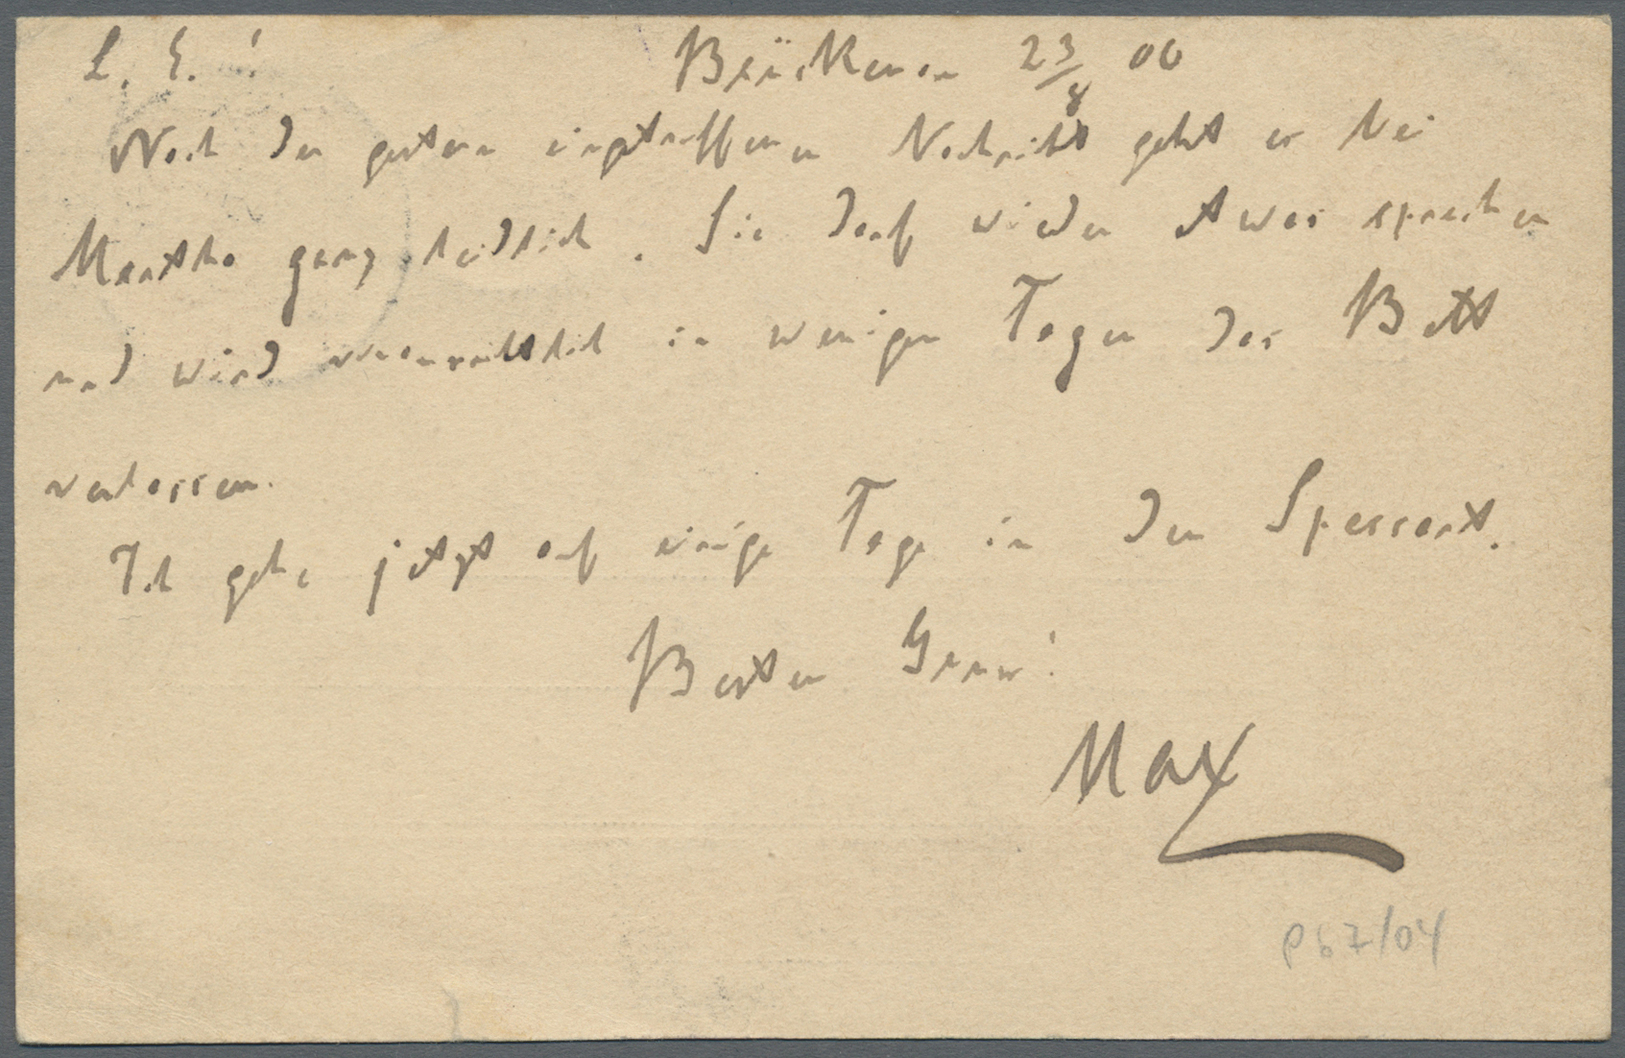 L. E.! Brückenau 23/8 06
Nach der gestern eingetroffenen Nachricht geht es bei
Martha ganz leidlich. Sie darf wieder etwas sprechen
und wird vermutlich in wenigen Tagen das Bett
verlassen.
Ich gehe jetzt auf einige Tage in den Spessart.
Besten Gruss!
Max
P67/04